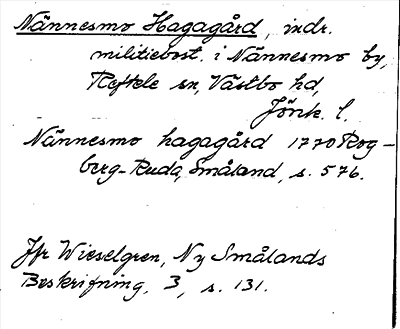 Nännesmo Hagagård, indr.
militiebost. i Nännesmo by,
Reftele sn, Västbo hd,
Jönk. l.
Nännesmo hagagård 1770 Rog-
berg-Ruda, Småland, s. 576.
Jfr Wieselgren, Ny Smålands
Beskrifning, 3, s. 131.